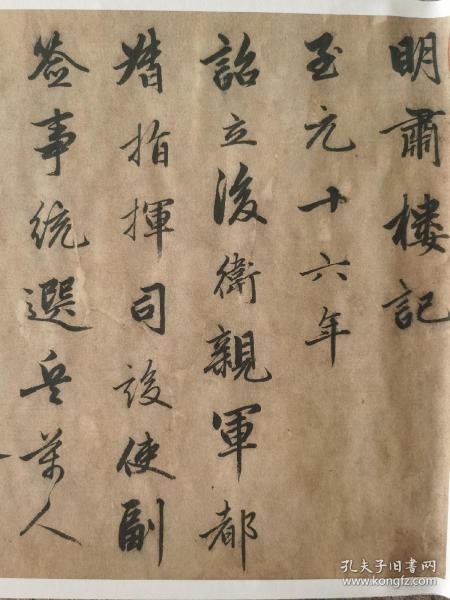 明肅樓記
至元十六年
詔立後衛親軍都
督指揮司設使副
签事統選兵萬人
孔夫子旧书网
www.kongfz.com